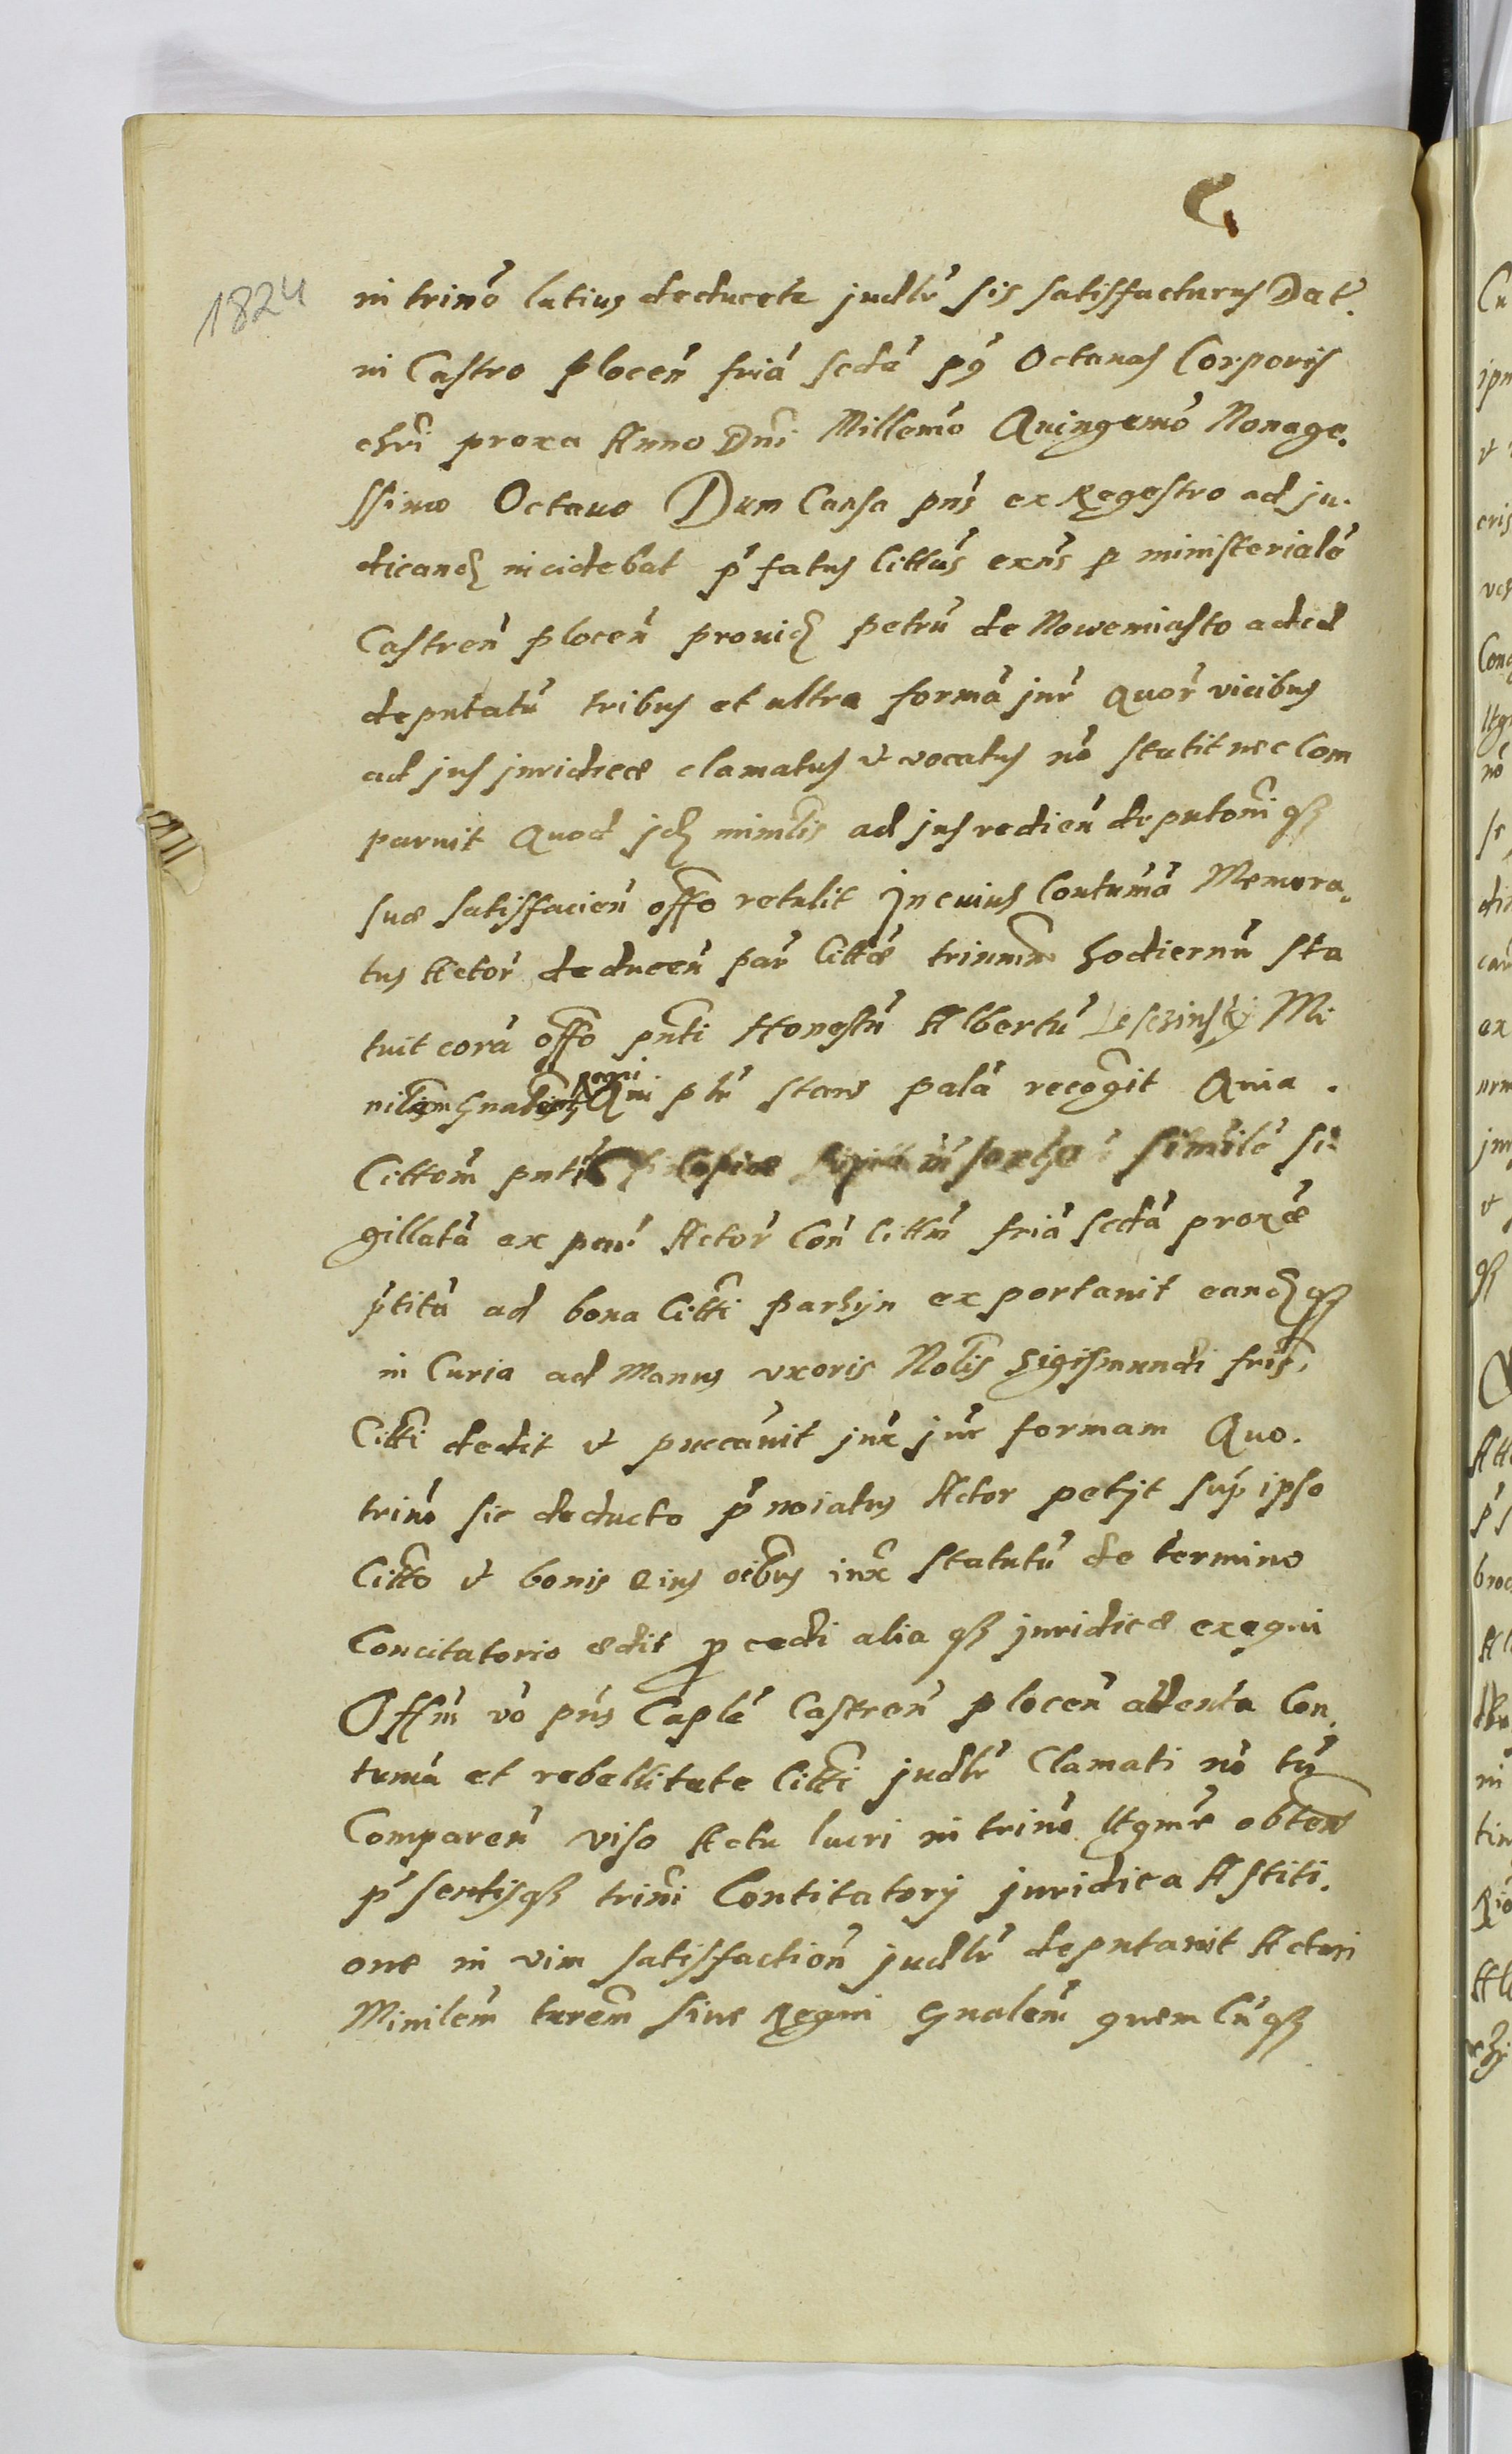 1824
in trino latius deducete judlr sis satisfacturus Dat.
in Castro plocen feria scda pq Octavas Corporis
chri proxa Anno Dni Millemo Quingemo Nonage.
ssimo Octavo Dum Causa pns ex Regestro ad ju.
dicand incidebat p fatus Cittus exns p ministeriale
Castren plocen provid petru de Nowemiasto ad id
deputatu tribus et ultra forma jur Quor vicibus
ad jus juridice clamatus et vocatus no stetit nec Com
paruit Quod jd minilis ad jus redien deputoni qz
suae satisfacien offo retulit In cuius Contuma Memora,
tus Actor deducen par Cittae trinum hodiernu sta
tuit cora offo pnti Honestu Albertu Mi
nilem Gnalem Regni Qui p lr stans pala recognit Quia .
Cittom pntis Copiae simile si
gillata ex par Actor Con Cittu fria scda proxae
ptita ad bona Citti parzyn exportavit eand qz
in Curia ad Manus uxoris Nobis Sigismundi fris
Citti dedit et pucavit jux jur formam Quo.
trino sic deducto p noiatus Actor petyt sup ipso
Citto et bonis eius oibus iux statutu de termino
Concitatorio edit p cedi alia qz juridice exequi
Offm vo pns Caple Castren plocen attenta Con,
tuma et rebellitate Citti judlr Clamati no tn
Comparen viso Actu lucri in trino ltgme obten
p sentisqz trini Contitatory juridica Astiti.
one in vim satisfaction judlr deputavit Actori
Minilem trrem sive Regni Gnalem quem Cuqz